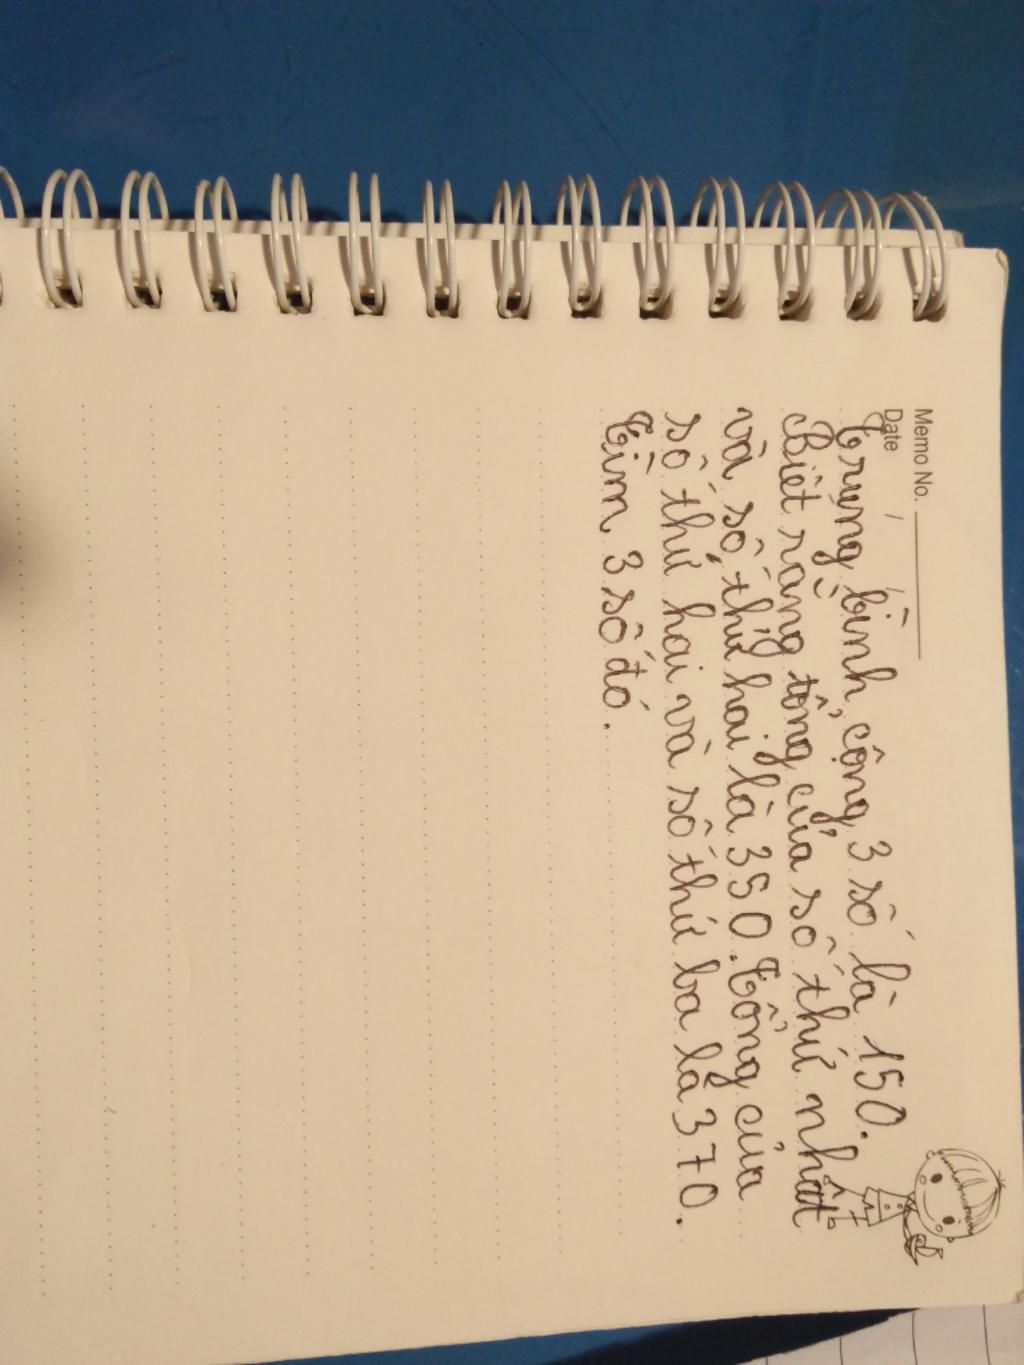 Memo No.
Date / /
Trung bình cộng 3 số là 150.
Biết rằng tổng của số thứ nhất
và số thứ hai là 350. Tổng của
số thứ hai và số thứ ba là 370.
Tìm 3 số đó.